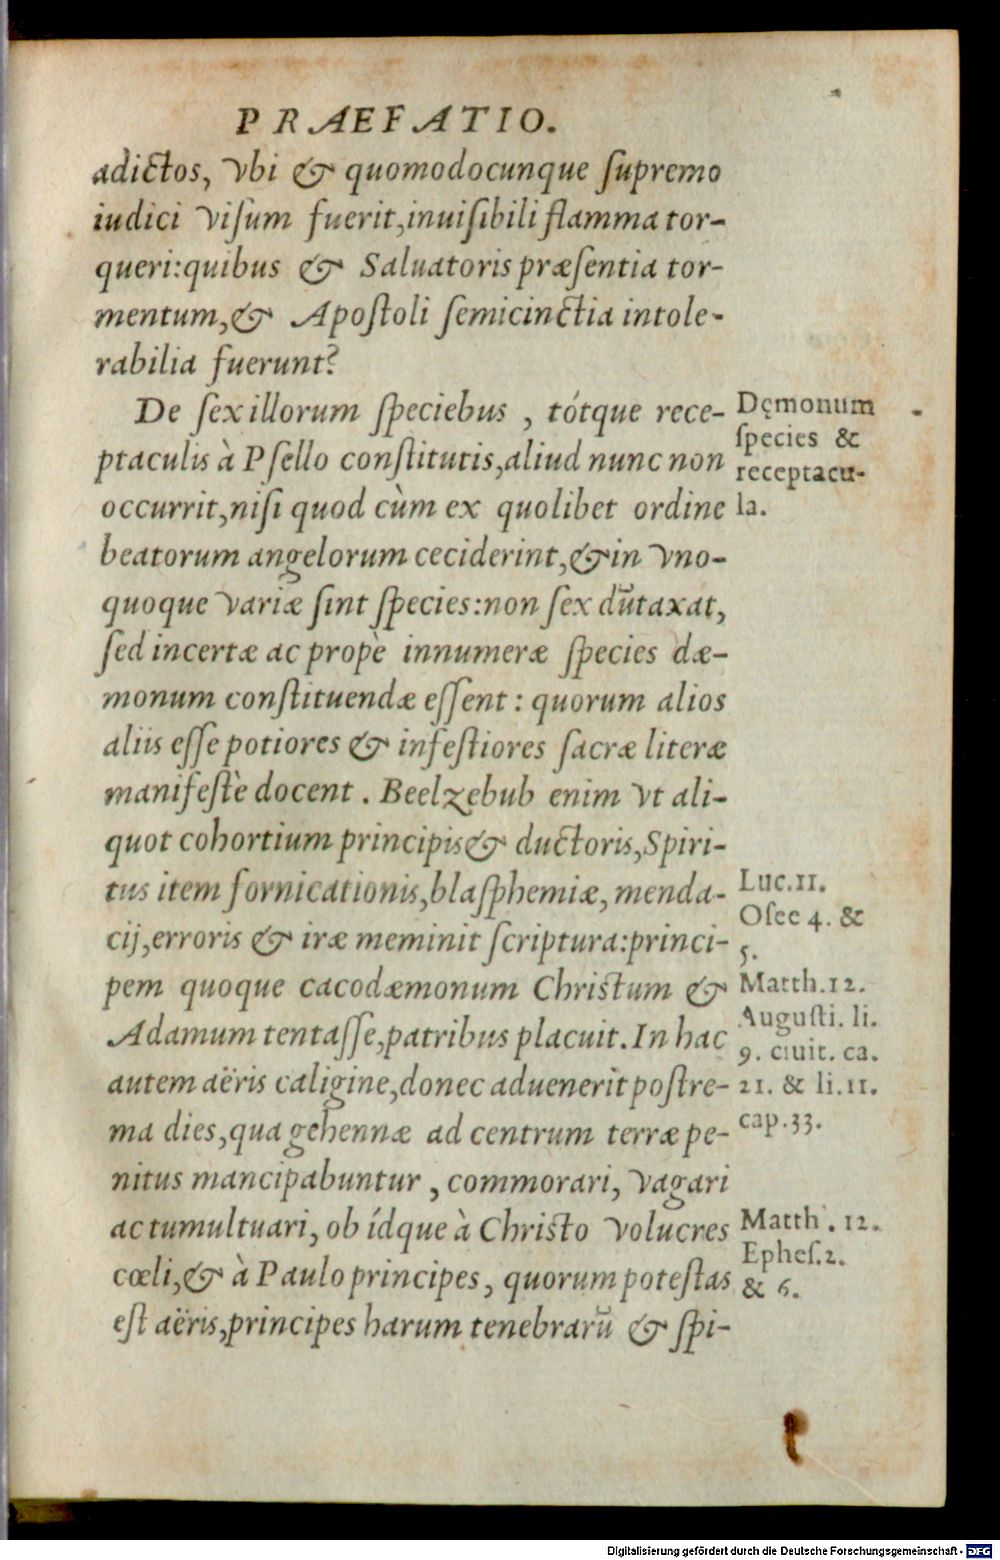 PRAEFATIO.
adictos, vbi & quomodocunque ſupremo
iudici viſum fuerit, inuiſibili flamma tor-
queri: quibus & Saluatoris præſentia tor-
mentum, & Apoſtoli ſemicinctia intole-
rabilia fuerunt?
De ſex illorum ſpeciebus, tótque rece-
ptaculis à Pſello conſtitutis, aliud nunc non
occurrit, niſi quod cùm ex quolibet ordine
beatorum angelorum ceciderint, & in vno-
quoque variæ ſint ſpecies: non ſex dũtaxat,
ſed incertæ ac propè innumeræ ſpecies dæ-
monum conſtituendæ eſſent: quorum alios
aliis eſſe potiores & infeſtiores ſacræ literæ
manifeſtè docent. Beelzebub enim vt ali-
quot cohortium principis & ductoris, Spiri-
tus item fornicationis, blaſphemiæ, menda-
cij, erroris & iræ meminit ſcriptura: princi-
pem quoque cacodæmonum Chriſtum &
Adamum tentaſſe, patribus placuit. In hac
autem aëris caligine, donec aduenerit poſtre-
ma dies, qua gehennæ ad centrum terræ pe-
nitus mancipabuntur, commorari, vagari
ac tumultuari, ob ídque à Chriſto volucres
cœli, & à Paulo principes, quorum poteſtas
eſt aëris, principes harum tenebrarũ & ſpi-
Dęmonum
ſpecies &
receptacu-
la.
Luc.11.
Oſee 4. &
5.
Matth.12.
Auguſti. li.
9. ciuit. ca.
21. & li.11.
cap.33.
Matth. 12.
Epheſ.2.
& 6.
Digitalisierung gefördert durch die Deutsche Forschungsgemeinschaft - DFG